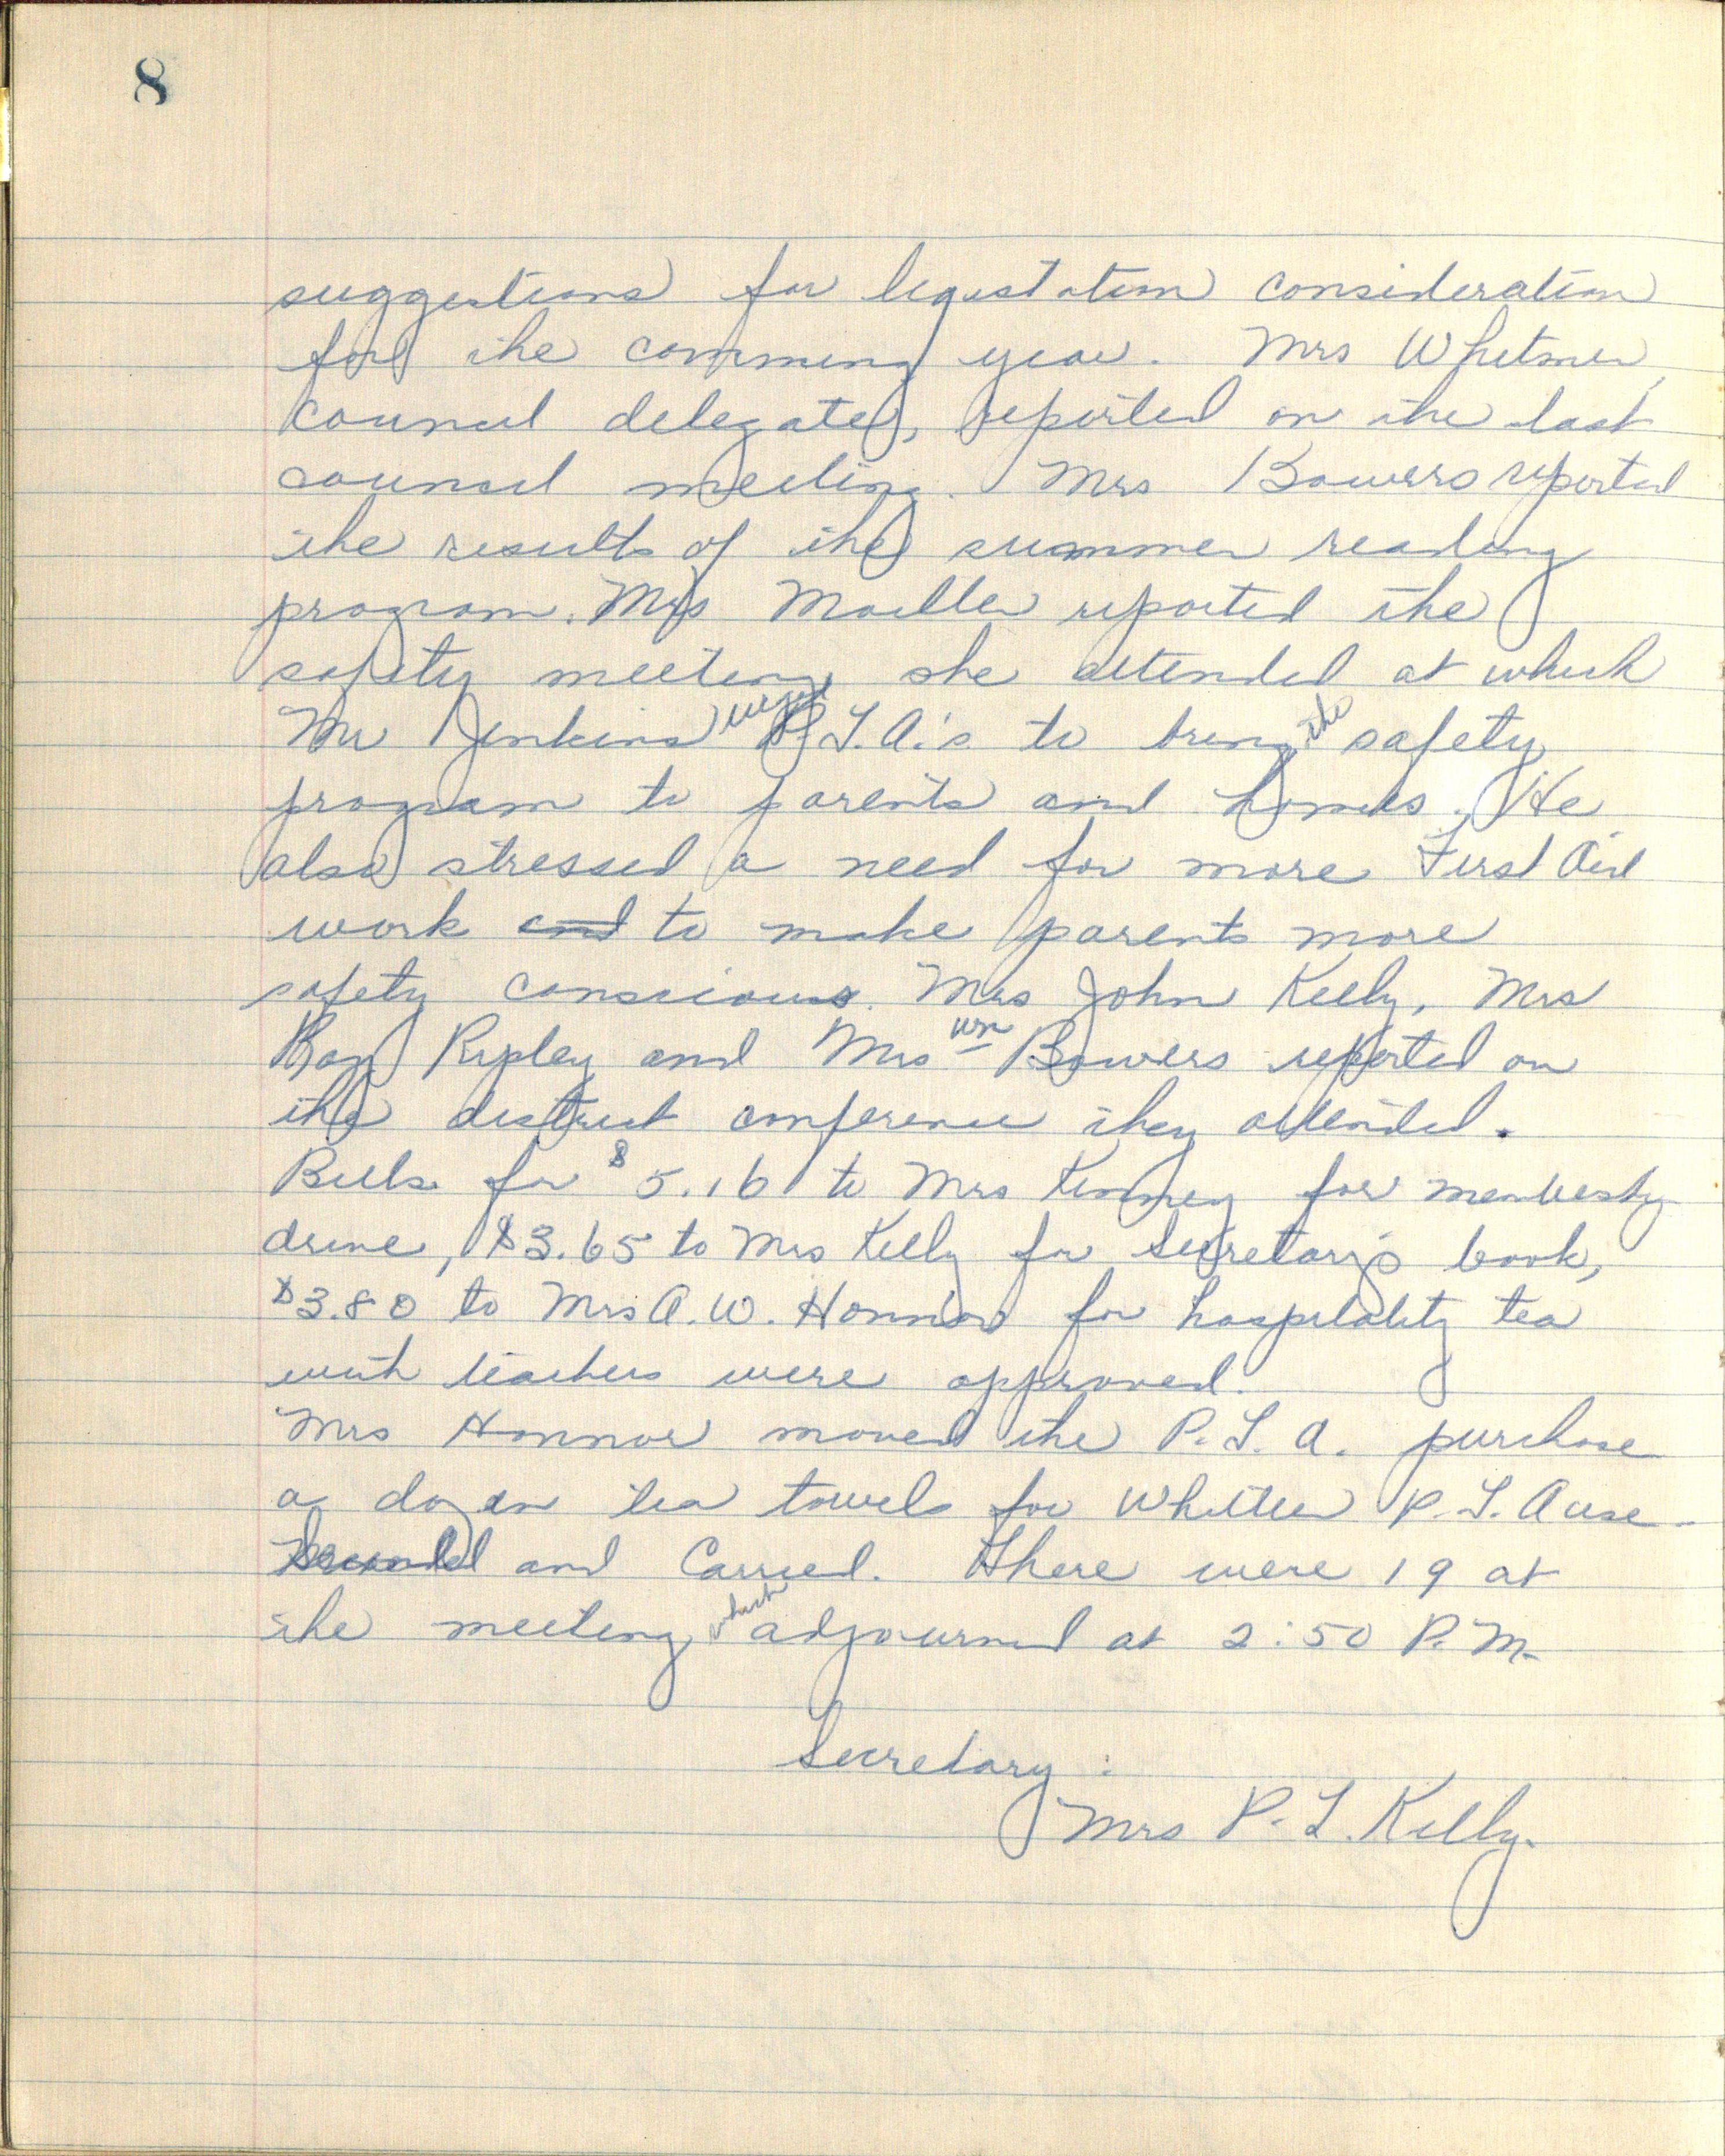 8
suggestions for legistation consideration
for the comming year. Mrs Whitmer,
council delegate, reported on the last
council meeting. Mrs Bowers reported
the results of the summer reading
program. Mrs Moeller reported the
safety meeting she attended at which
Mr Jenkins urged P.T.A.'s to bring the safety
program to parents and homes. He
also stressed a need for more First Aid
work and to make parents more
safety conscious. Mrs John Kelly, Mrs
Ray Ripley and Mrs Wm Bowers reported on
the district conference they attended.
Bills for $5.16 to Mrs Kinney for membership
drive, $3.65 to Mrs Kelly for Secretary's book,
$3.80 to Mrs A.W. Honnor for hospitality tea
with teachers were approved.
Mrs Honnor moved the P.T.A. purchase
a dozen tea towels for Whittier P.T.A use.
Seconded and Carried. There were 19 at
the meeting which adjourned at 2:50 P.M.
Secretary:
Mrs P. L. Kelly.